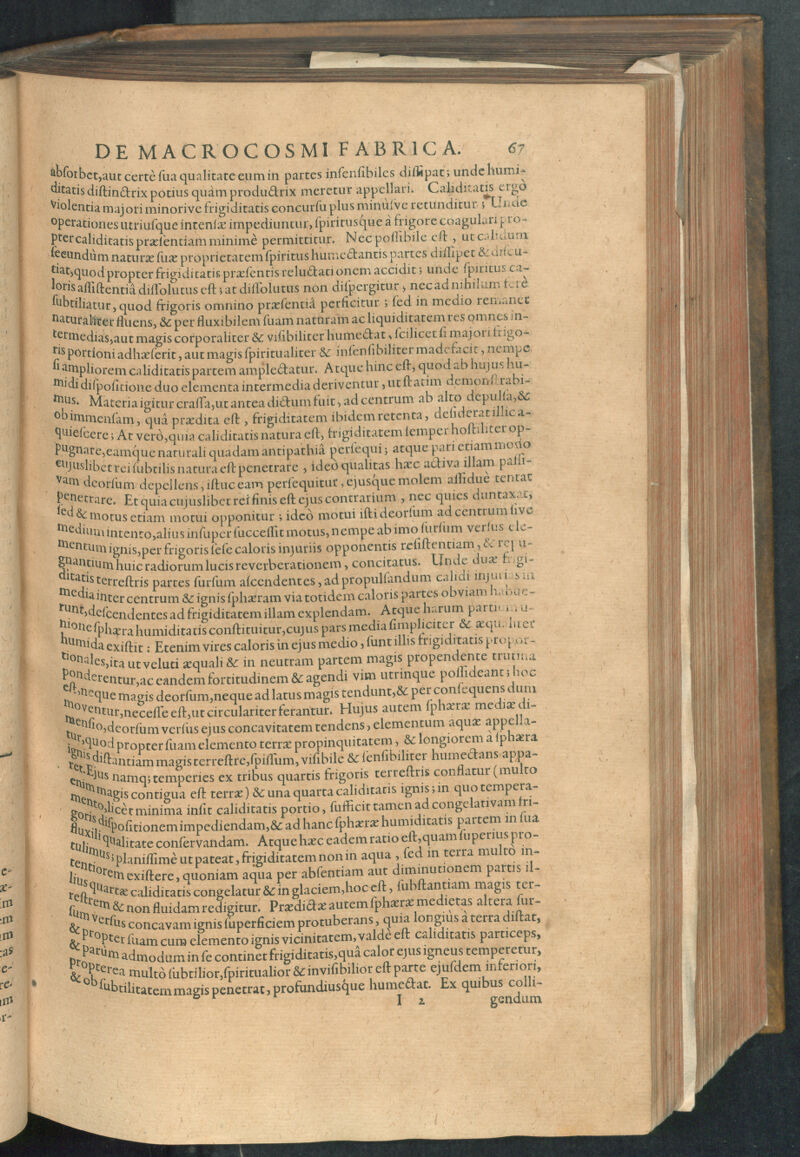 DE MACROCOSMI FABRICA. 67
abſorbet, aut certè ſua qualitate eum in partes inſenſibiles diſſipat; unde humi-
ditatis diſtinctrix potius quàm productrix meretur appellari. Caliditatis ergò
violentia majori minorive frigiditatis concurſu plus minuſve retunditur; Unde
operationes utriuſque intenſæ impediuntur, ſpiritusque à frigore coagulari pro-
pter caliditatis præſentiam minimè permittitur. Nec poſſibile eſt, ut calidum
ſecundùm naturæ ſuæ proprietatem ſpiritus humectantis partes diſſipet & diſcu-
tiat, quod propter frigiditatis præſentis reluctationem accidit; unde ſpiritus ca-
loris aſſiſtentiâ diſſolutus eſt; at diſſolutus non diſpergitur, nec ad nihilum ferè
ſubtiliatur, quod frigoris omnino præſentiâ perficitur; ſed in medio remanet
naturaliter fluens, & per fluxibilem ſuam naturam ac liquiditatem res omnes in-
termedias, aut magis corporaliter & viſibiliter humectat, ſcilicet ſi majori frigo-
ris portioni adhæſerit, aut magis ſpiritualiter & inſenſibiliter madefacit, nempe
ſi ampliorem caliditatis partem amplectatur. Atque hinc eſt, quod ab hujus hu-
midi diſpoſitione duo elementa intermedia deriventur, ut ſtatim demonſtrabi-
mus. Materia igitur craſſa, ut antea dictum fuit, ad centrum ab alto depulſa, &
ob immenſam, quâ prædita eſt, frigiditatem ibidem retenta, deſiderat illic a-
quieſcere; At verò, quia caliditatis natura eſt, frigiditatem ſemper hoſtiliter op-
pugnare, eamque naturali quadam antipathiâ perſequi; atque pari etiam modo
cujuslibet rei ſubtilis natura eſt penetrare, ideò qualitas hæc activa illam paſſi-
vam deorſum depellens, iſtuc eam perſequitur, ejusque molem aſſiduè tentat
penetrare. Et quia cujuslibet rei finis eſt ejus contrarium, nec quies duntaxat,
ſed & motus etiam motui opponitur; ideò motui iſti deorſum ad centrum ſive
medium intento, alius inſuper ſucceſſit motus, nempe ab imo ſurſum verſus ele-
mentum ignis, per frigoris ſeſe caloris injuriis opponentis reſiſtentiam, & repu-
gnantium huic radiorum lucis reverberationem, concitatus. Unde duæ frigi-
ditatis terreſtris partes ſurſum aſcendentes, ad propulſandum calidi injurias in
media inter centrum & ignis ſphæram via totidem caloris partes obviam habue-
runt, deſcendentes ad frigiditatem illam explendam. Atque harum partium u-
nione ſphæra humiditatis conſtituitur, cujus pars media ſimpliciter & æqualiter
humida exiſtit: Etenim vires caloris in ejus medio, ſunt illis frigiditatis propor-
tionales, ita ut veluti æquali & in neutram partem magis propendente trutina
ponderentur, ac eandem fortitudinem & agendi vim utrinque poſſideant; hoc
eſt, neque magis deorſum, neque ad latus magis tendunt, & per conſequens dum
moventur, neceſſe eſt, ut circulariter ferantur. Hujus autem ſphæræ mediæ di-
menſio, deorſum verſus ejus concavitatem tendens, elementum aquæ appella-
tur, quod propter ſuam elemento terræ propinquitatem, & longiorem à ſphæra
ignis diſtantiam magis terreſtre, ſpiſſum, viſibile & ſenſibiliter humectans appa-
ret. Ejus namq; temperies ex tribus quartis frigoris terreſtris conflatur (multo
enim magis contigua eſt terræ) & una quarta caliditatis ignis; in quo tempera-
mento, licèt minima inſit caliditatis portio, ſufficit tamen ad congelativam fri-
goris diſpoſitionem impediendam, & ad hanc ſphæræ humiditatis partem in ſua
fluxili qualitate conſervandam. Atque hæc eadem ratio eſt, quam ſuperius pro-
tulimus; planiſſimè ut pateat, frigiditatem non in aqua, ſed in terra multò in-
tentiorem exiſtere, quoniam aqua per abſentiam aut diminutionem partis il-
lius quartæ caliditatis congelatur & in glaciem, hoc eſt, ſubſtantiam magis ter-
reſtrem & non fluidam redigitur. Prædictæ autem ſphæræ medietas altera ſur-
ſum verſus concavam ignis ſuperficiem protuberans, quia longiùs à terra diſtat,
& propter ſuam cum elemento ignis vicinitatem, valdè eſt caliditatis particeps,
& parùm admodum in ſe continet frigiditatis, quâ calor ejus igneus temperetur,
propterea multò ſubtilior, ſpiritualior & inviſibilior eſt parte ejuſdem inferiori,
& ob ſubtilitatem magis penetrat, profundiusque humectat. Ex quibus colli-
I 2 gendum